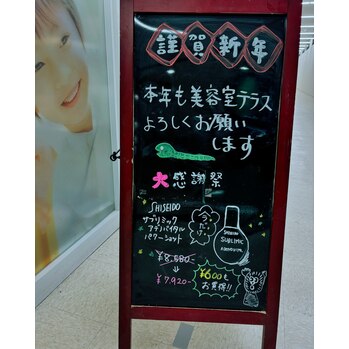 謹賀新年
本年も美容室テラス
よろしくお願い
します
大感謝祭
SHISEIDO
サブリミック
アデノバイタル
パワーショット
今だけ!
SHISEIDO
SUBLIMIC
ADENOVITAL
¥8,580-
↓
¥7,920-
¥600も
お買得!!